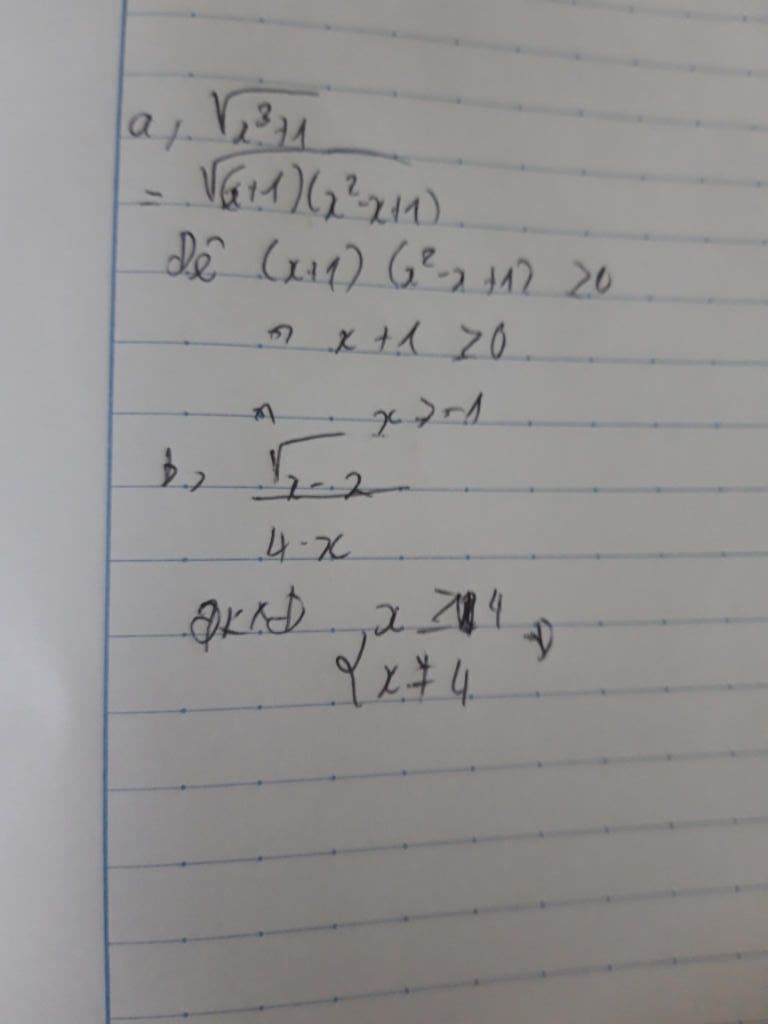 a, √x³+1
= √(x+1)(x²-x+1)
Để (x+1) (x²-x+1) ≥0
x+1 ≥0
x ≥ -1
b, √x-2
4-x
ĐKXĐ x ≥ 4
{ x ≠ 4